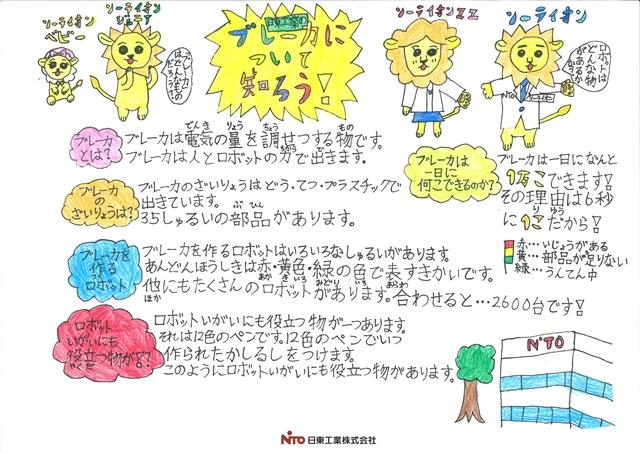 ソーライオン
ベビー
ソーライオン
ジュニア
ブレーカは
どんなもの
だろう?
日東工業の
ブレーカに
ついて
知ろう!
ソーライオンミズ
ソーライオン
ロボットは
どんな物
があるか
な?
NITO
ブレーカ
とは?
ブレーカは電気の量を調せつする物です。
でんき りょう ちょう もの
ブレーカは人とロボットの力で出きます。
ちから
ブレーカ
のざいりょうは?
ブレーカのざいりょうはどう・てつ・プラスチックで
出きています。
35しゅるいの部品があります。
ぶひん
ブレーカは
一日に
何こできるのか?
ブレーカは一日になんと
1万こできます!
その理由は6秒
りゆう
に1こだから!
赤…いじょうがある
黄…部品が足りない
緑…うんてん中
ブレーカを
作る
ロボット
ブレーカを作るロボットはいろいろなしゅるいがあります。
あんどんほうしきは赤・黄色・緑の色で表すきかいです。
あか きいろ みどり いろ あらわ
他にもたくさんのロボットがあります。合わせると…2600台です!
ほか
ロボット
いがいにも
役立つ物が!?
やくだ
ロボットいがいにも役立つ物が一つあります。
それは12色のペンです。12色のペンでいつ
作られたかしるしをつけます。
このようにロボットいがいにも役立つ物があります。
NITO
NITO 日東工業株式会社